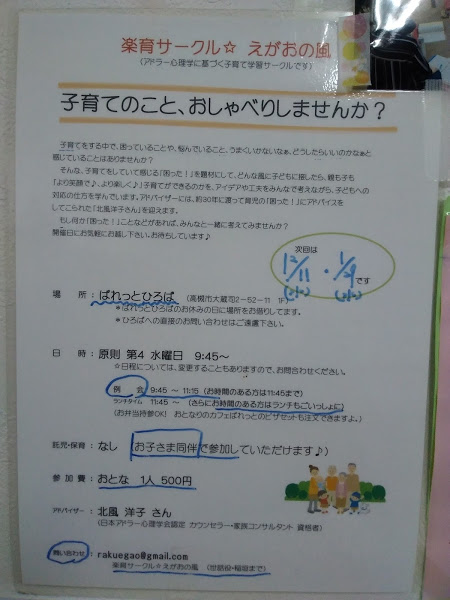 楽育サークル☆ えがおの風
(アドラー心理学に基づく子育て学習サークルです)
子育てのこと、おしゃべりしませんか？
子育てをする中で、困っていることや、悩んでいること、うまくいかないなぁ、どうしたらいいのかなぁと
感じていることはありませんか？
そんな、子育てをしていて感じる「困った！」を題材にして、どんな風に子どもに接したら、親も子も
「より笑顔で♪、より楽しく♪」子育てができるのかを、アイデアや工夫をみんなで考えながら、子どもへの
対応の仕方を学んでいます。アドバイザーには、約30年に渡って育児の「困った！」にアドバイスを
してこられた「北風洋子さん」を迎えます。
もし何か「困った！」ことなどがあれば、みんなと一緒に考えてみませんか？
開催日にお気軽にお越し下さい。お待ちしています♪
次回は
12/11 ・ 1/29 です
(水) (水)
場 所 : ぱれっとひろば (高槻市大蔵司2-52-11 1F)
＊ぱれっとひろばのお休みの日に場所をお借りしてます。
＊ひろばへの直接のお問い合わせはご遠慮下さい。
日 時 : 原則 第4 水曜日 9:45～
☆日程については、変更することもありますので、お問合わせください。
例 会 9:45 ～ 11:15 (お時間のある方は11:45まで)
ランチタイム 11:45 ～ (さらにお時間のある方はランチもごいっしょに)
(お弁当持参OK! おとなりのカフェぱれっとのピザセットも注文できますよ。)
託児・保育 : なし (お子さま同伴で参加していただけます♪)
参 加 費 : おとな 1人 500円
アドバイザー : 北風 洋子 さん
(日本アドラー心理学会認定 カウンセラー・家族コンサルタント 資格者)
問い合わせ : rakuegao@gmail.com
楽育サークル☆えがおの風 (世話役・稲垣まで)